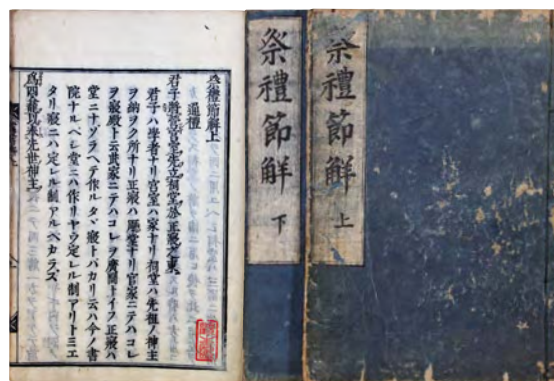 祭禮節解 上
祭禮節解 下
祭禮節解上
通禮
君子將營宮室先立祠堂於正寢之東
君子ハ學者ナリ宮室ハ家ナリ祠堂ハ先祖ノ神主
ヲ納ヲク所ナリ正寢ハ堂ナリ官家ニテハコレ
ヲ寢殿ト云武家ニテハコレヲ廣間トイフ正寢ハ
堂ニナゾラヘテ作ルタヾ寢トバカリ云ハ今ノ書
院ナルベシ堂ニハ作リヤウ定レル制アリトミエ
タリ寢ニハ定レル制アルベカラズ
爲四龕以奉先世神主